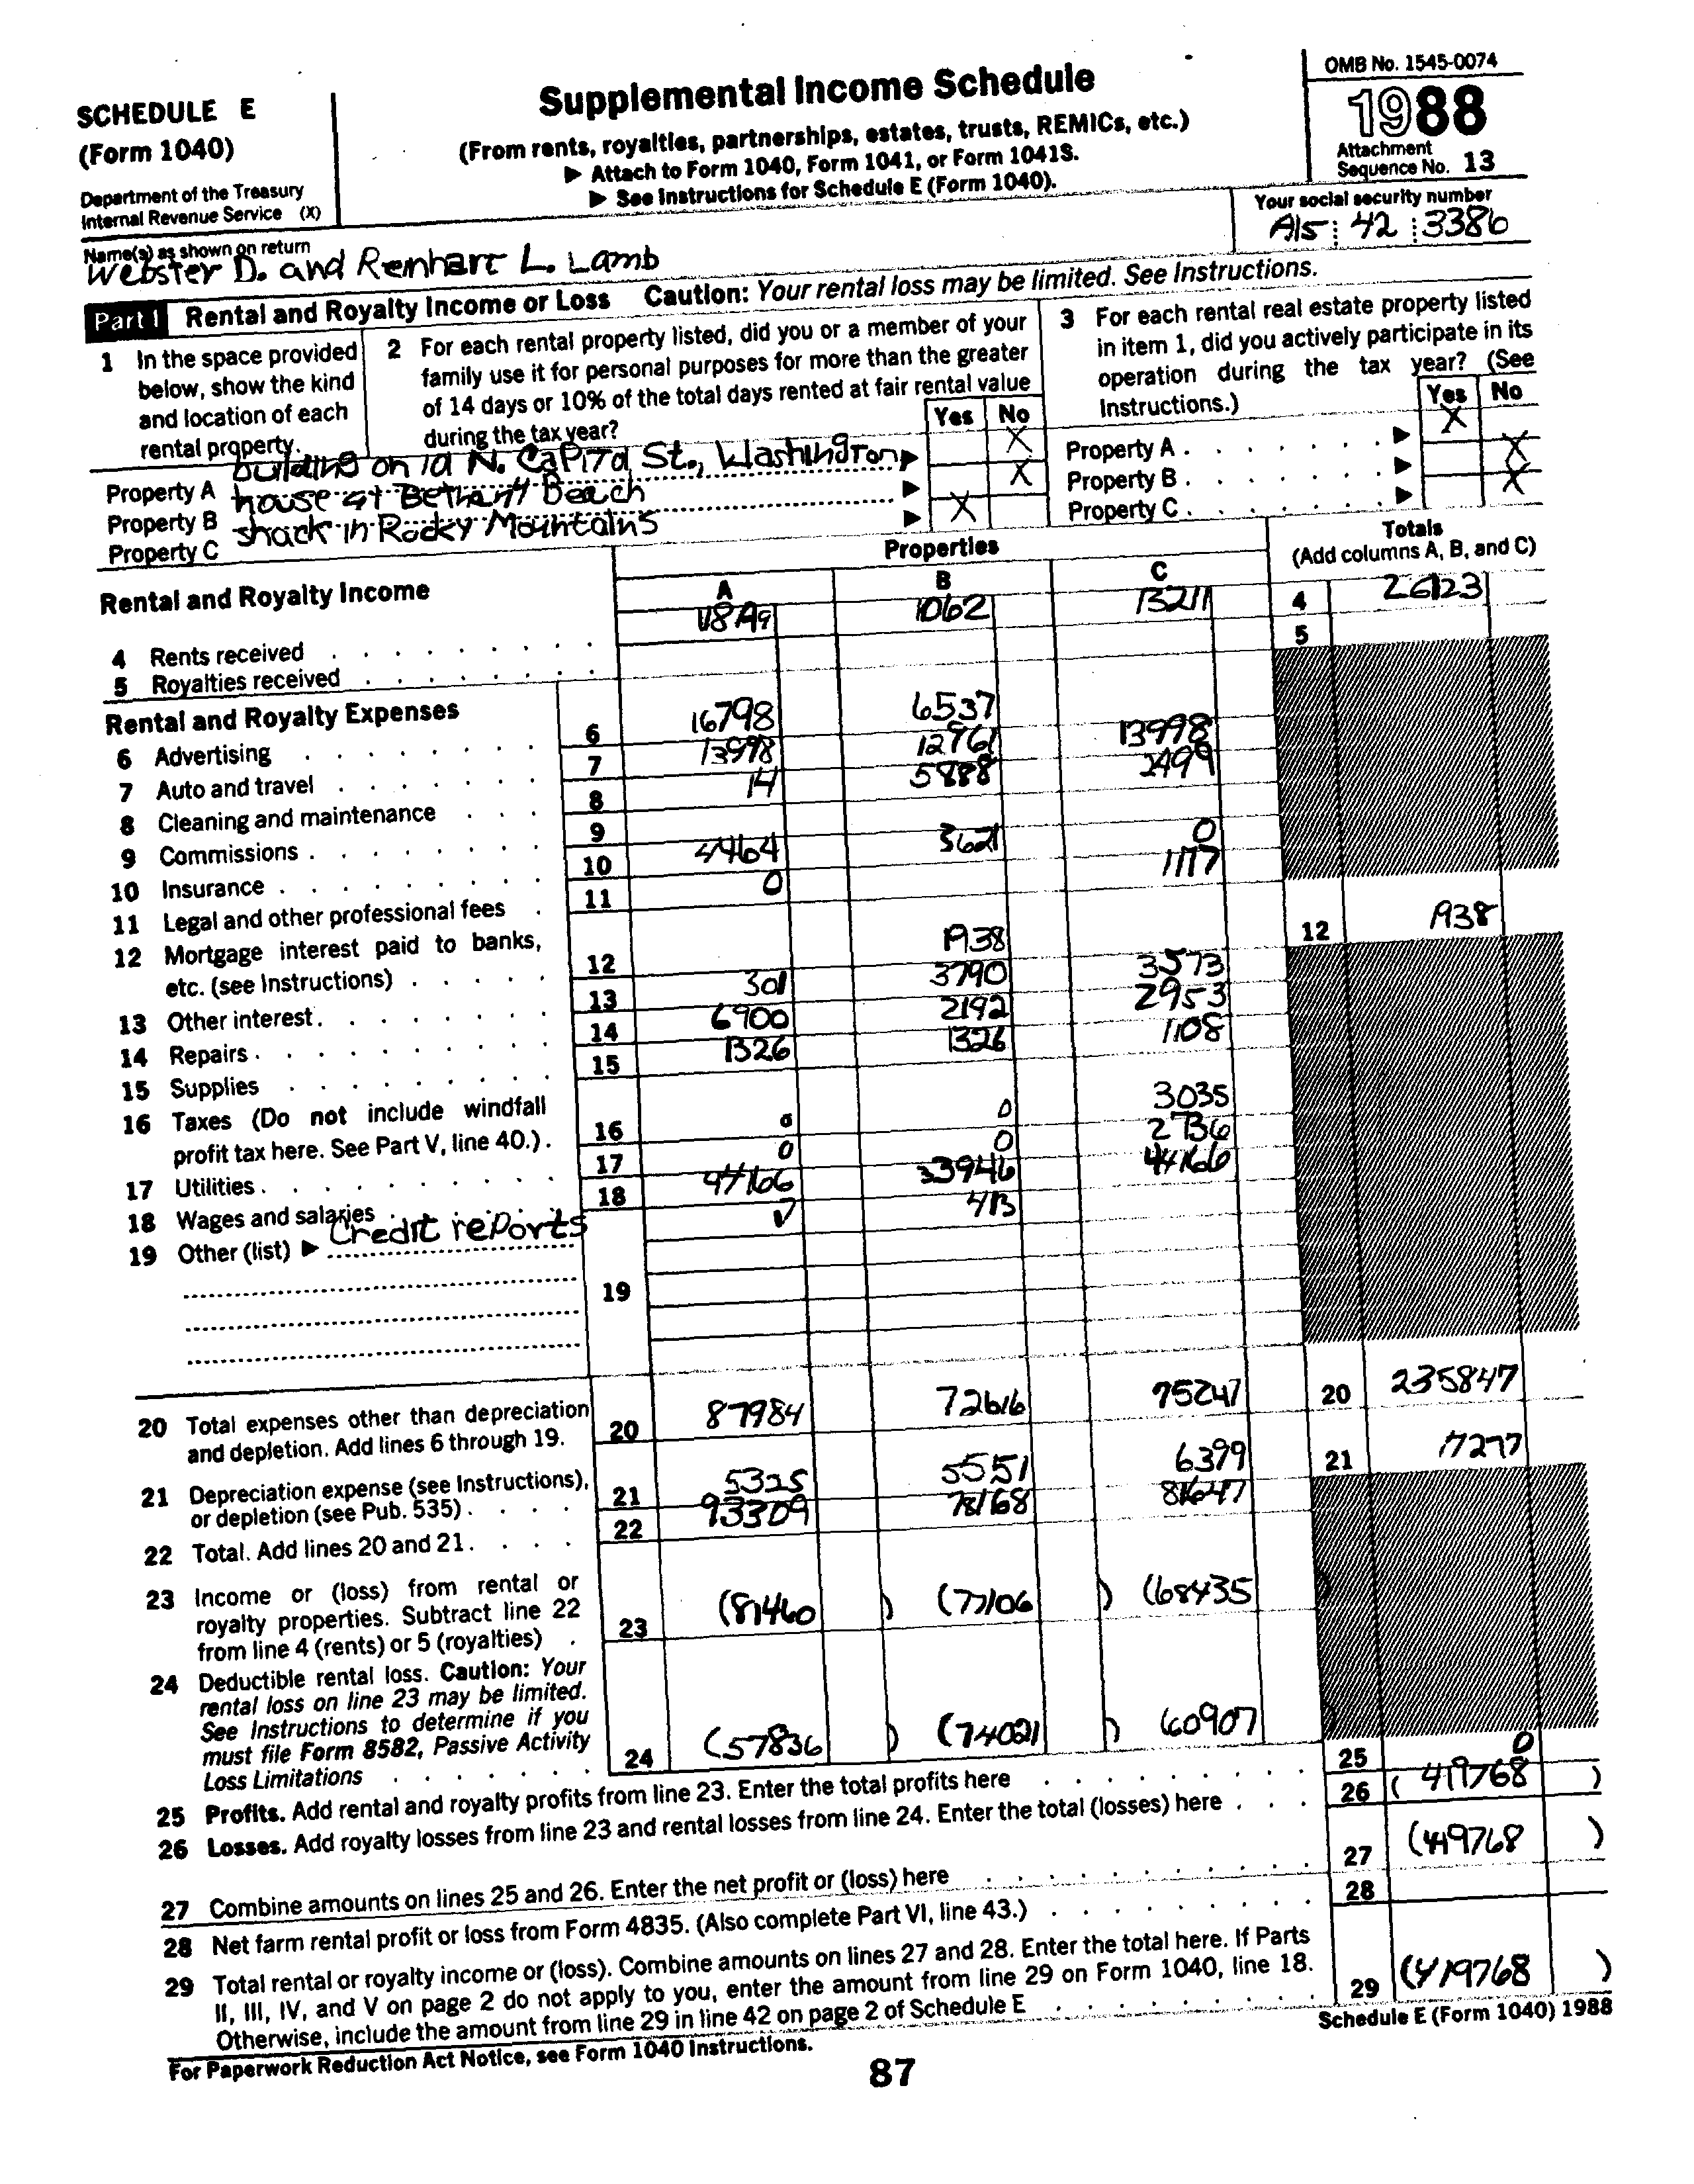 SCHEDULE E
(Form 1040)
Department of the Treasury
Internal Revenue Service (X)
Supplemental Income Schedule
(From rents, royalties, partnerships, estates, trusts, REMICs, etc.)
▶ Attach to Form 1040, Form 1041, or Form 1041S.
▶ See Instructions for Schedule E (Form 1040).
OMB No. 1545-0074
1988
Attachment
Sequence No. 13
Name(s) as shown on return
Webster D. and Renhart L. Lamb
Your social security number
42 3386
Part I Rental and Royalty Income or Loss Caution: Your rental loss may be limited. See Instructions.
1 In the space provided
below, show the kind
and location of each
rental property.
2 For each rental property listed, did you or a member of your
family use it for personal purposes for more than the greater
of 14 days or 10% of the total days rented at fair rental value
during the tax year?
Yes No
3 For each rental real estate property listed
in item 1, did you actively participate in its
operation during the tax year? (See
Instructions.)
Yes No
Property A building on N. Capitol St., Washington ▶ X Property A ▶ X
Property B house at Bethany Beach ▶ X Property B ▶ X
Property C shack in Rocky Mountains ▶ X Property C ▶ X
Rental and Royalty Income
Properties
A B C
Totals
(Add columns A, B, and C)
4 Rents received 1062 13211 4 26123
5 Royalties received 5
Rental and Royalty Expenses
6 Advertising 6 16798 6537
7 Auto and travel 7 13998 12961 13998
8 Cleaning and maintenance 8 14 5888 2499
9 Commissions 9
10 Insurance 10 4464 3621 0
11 Legal and other professional fees 11 0 1117
12 Mortgage interest paid to banks,
etc. (see Instructions) 12 1938 12 1938
13 Other interest 13 301 3790 3573
14 Repairs 14 6900 2192 2953
15 Supplies 15 1326 1326 1108
16 Taxes (Do not include windfall
profit tax here. See Part V, line 40.) 16 0 0 3035
17 Utilities 17 0 0 2736
18 Wages and salaries 18 44166 33946 44166
19 Other (list) ▶ Credit reports 413
19
20 Total expenses other than depreciation
and depletion. Add lines 6 through 19. 20 87984 72616 75247 20 235847
21 Depreciation expense (see Instructions),
or depletion (see Pub. 535) 21 5325 5551 6399 21 17277
22 Total. Add lines 20 and 21 22 93309 78168 81647
23 Income or (loss) from rental or
royalty properties. Subtract line 22
from line 4 (rents) or 5 (royalties) 23 (81460 ) (77106 ) (68435 )
24 Deductible rental loss. Caution: Your
rental loss on line 23 may be limited.
See Instructions to determine if you
must file Form 8582, Passive Activity
Loss Limitations 24 (57836 ) (74021 ) (60907
25 Profits. Add rental and royalty profits from line 23. Enter the total profits here 25 0
26 Losses. Add royalty losses from line 23 and rental losses from line 24. Enter the total (losses) here 26 ( 419768 )
27 Combine amounts on lines 25 and 26. Enter the net profit or (loss) here 27 (419768 )
28 Net farm rental profit or loss from Form 4835. (Also complete Part VI, line 43.) 28
29 Total rental or royalty income or (loss). Combine amounts on lines 27 and 28. Enter the total here. If Parts
II, III, IV, and V on page 2 do not apply to you, enter the amount from line 29 on Form 1040, line 18.
Otherwise, include the amount from line 29 in line 42 on page 2 of Schedule E 29 (419768 )
For Paperwork Reduction Act Notice, see Form 1040 Instructions.
Schedule E (Form 1040) 1988
87